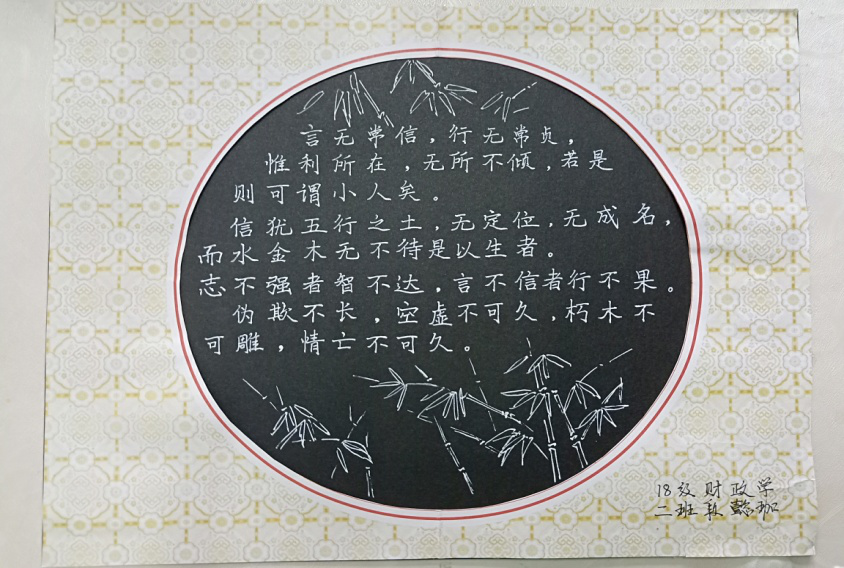 言无常信，行无常贞，
惟利所在，无所不倾，若是
则可谓小人矣。
信犹五行之土，无定位，无成名，
而水金木无不待是以生者。
志不强者智不达，言不信者行不果。
伪欺不长，空虚不可久，朽木不
可雕，情亡不可久。
18级财政学
二班段懿珈